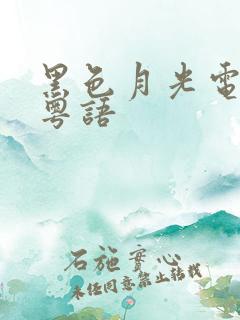 黑色月光電
粵語
石施實心
未任同意禁止转载